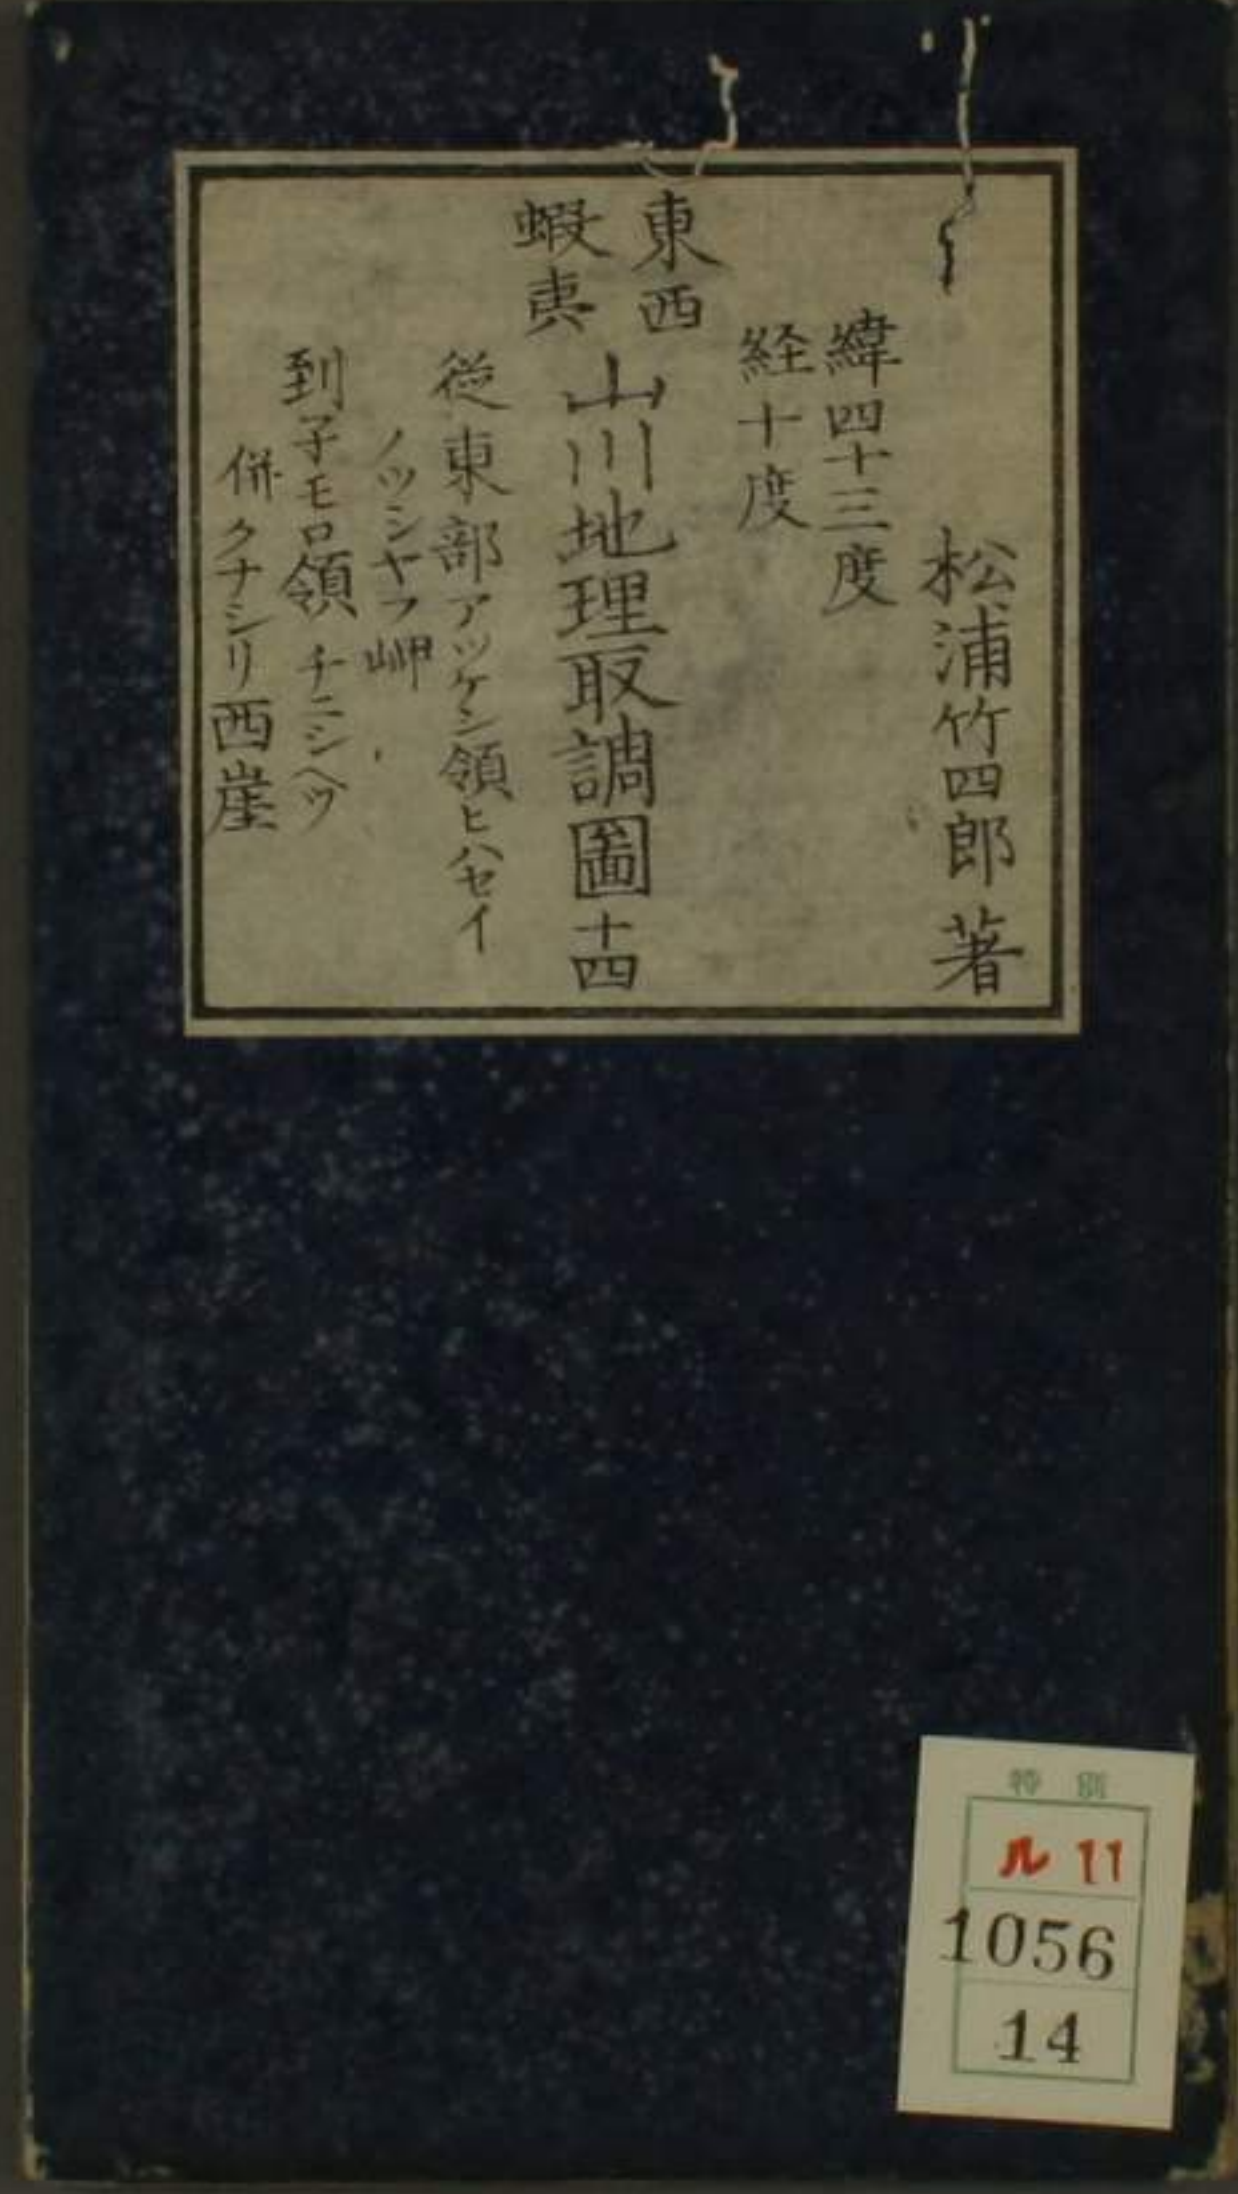 松浦竹四郎著
緯四十三度
経十度
東西
蝦夷
山川地理取調圖十四
従東部アツケシ領ヒハセイ
ノツシヤフ岬
到子モロ領チニシヘツ
併クナシリ西崖
特別
ル 11
1056
14